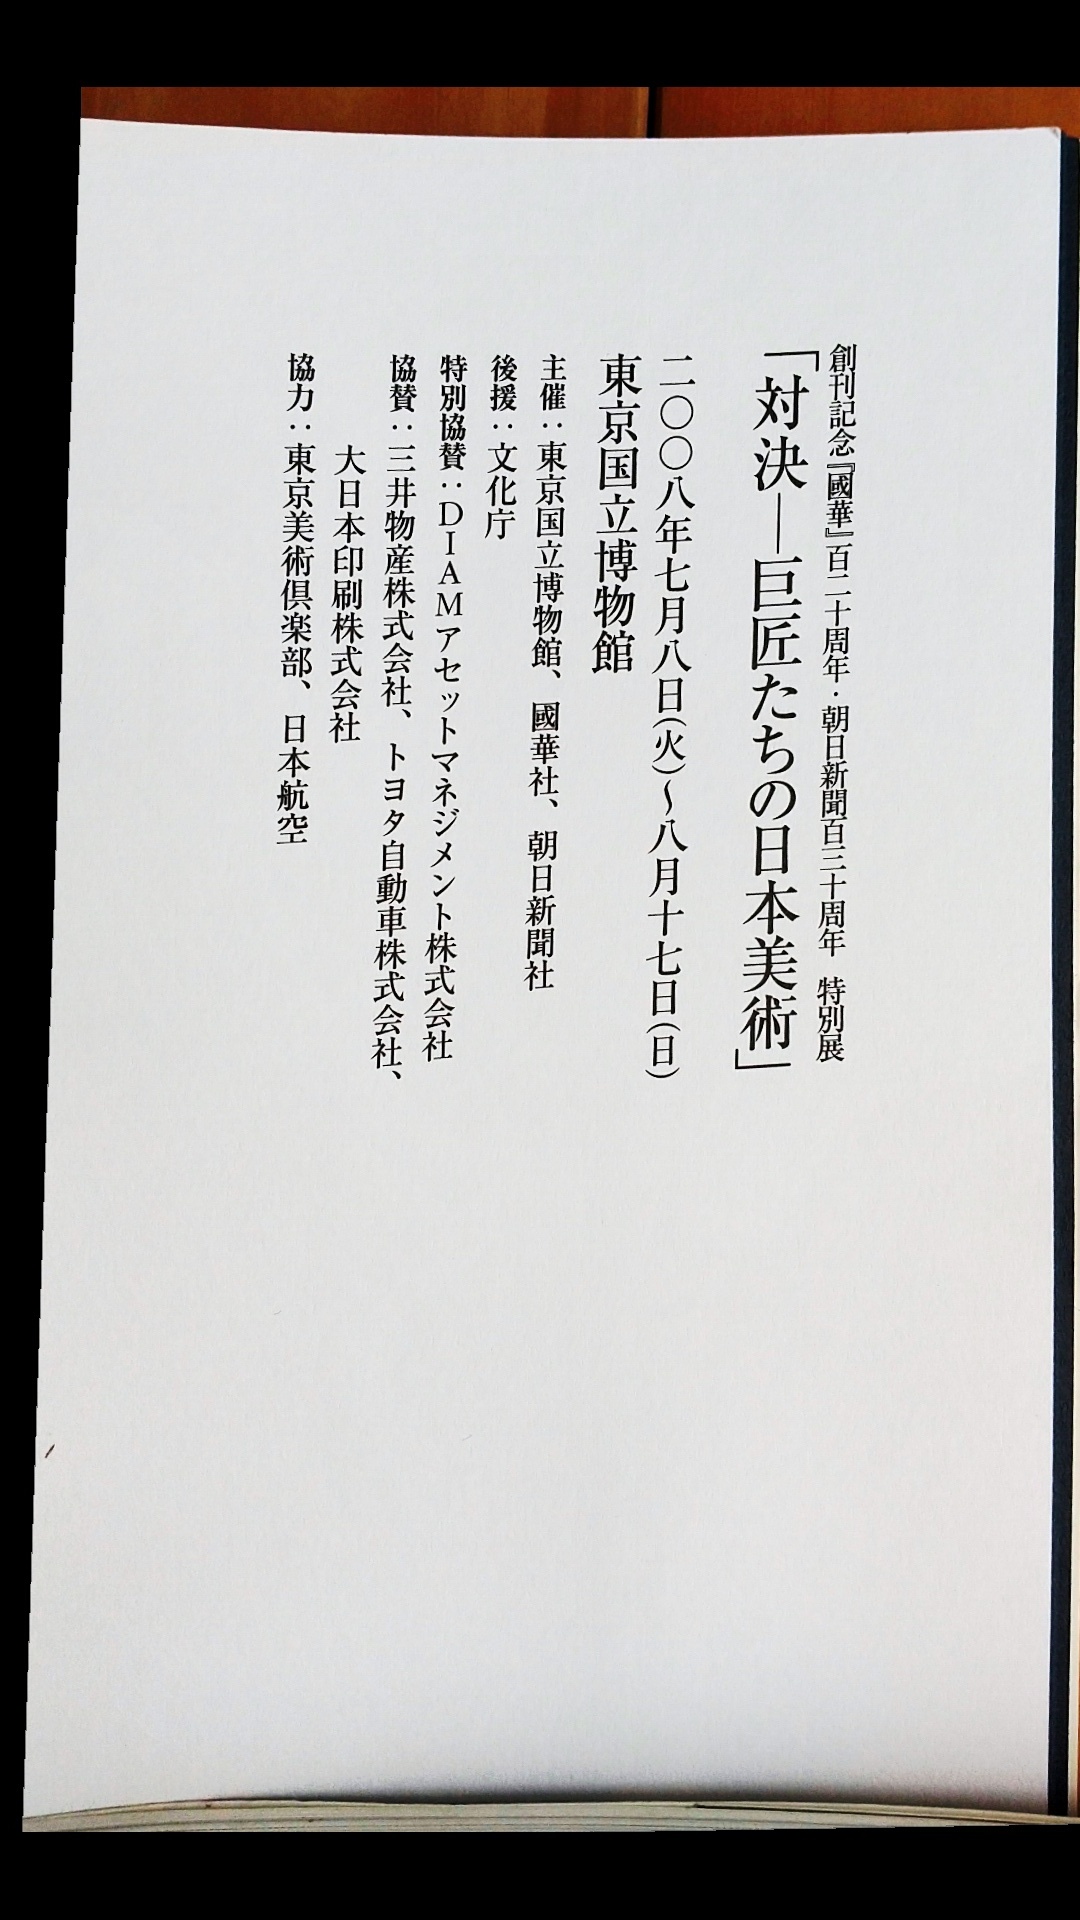 創刊記念『國華』百二十周年・朝日新聞百三十周年　特別展
「対決―巨匠たちの日本美術」
二〇〇八年七月八日(火)～八月十七日(日)
東京国立博物館
主催：東京国立博物館、國華社、朝日新聞社
後援：文化庁
特別協賛：DIAMアセットマネジメント株式会社
協賛：三井物産株式会社、トヨタ自動車株式会社、
大日本印刷株式会社
協力：東京美術倶楽部、日本航空